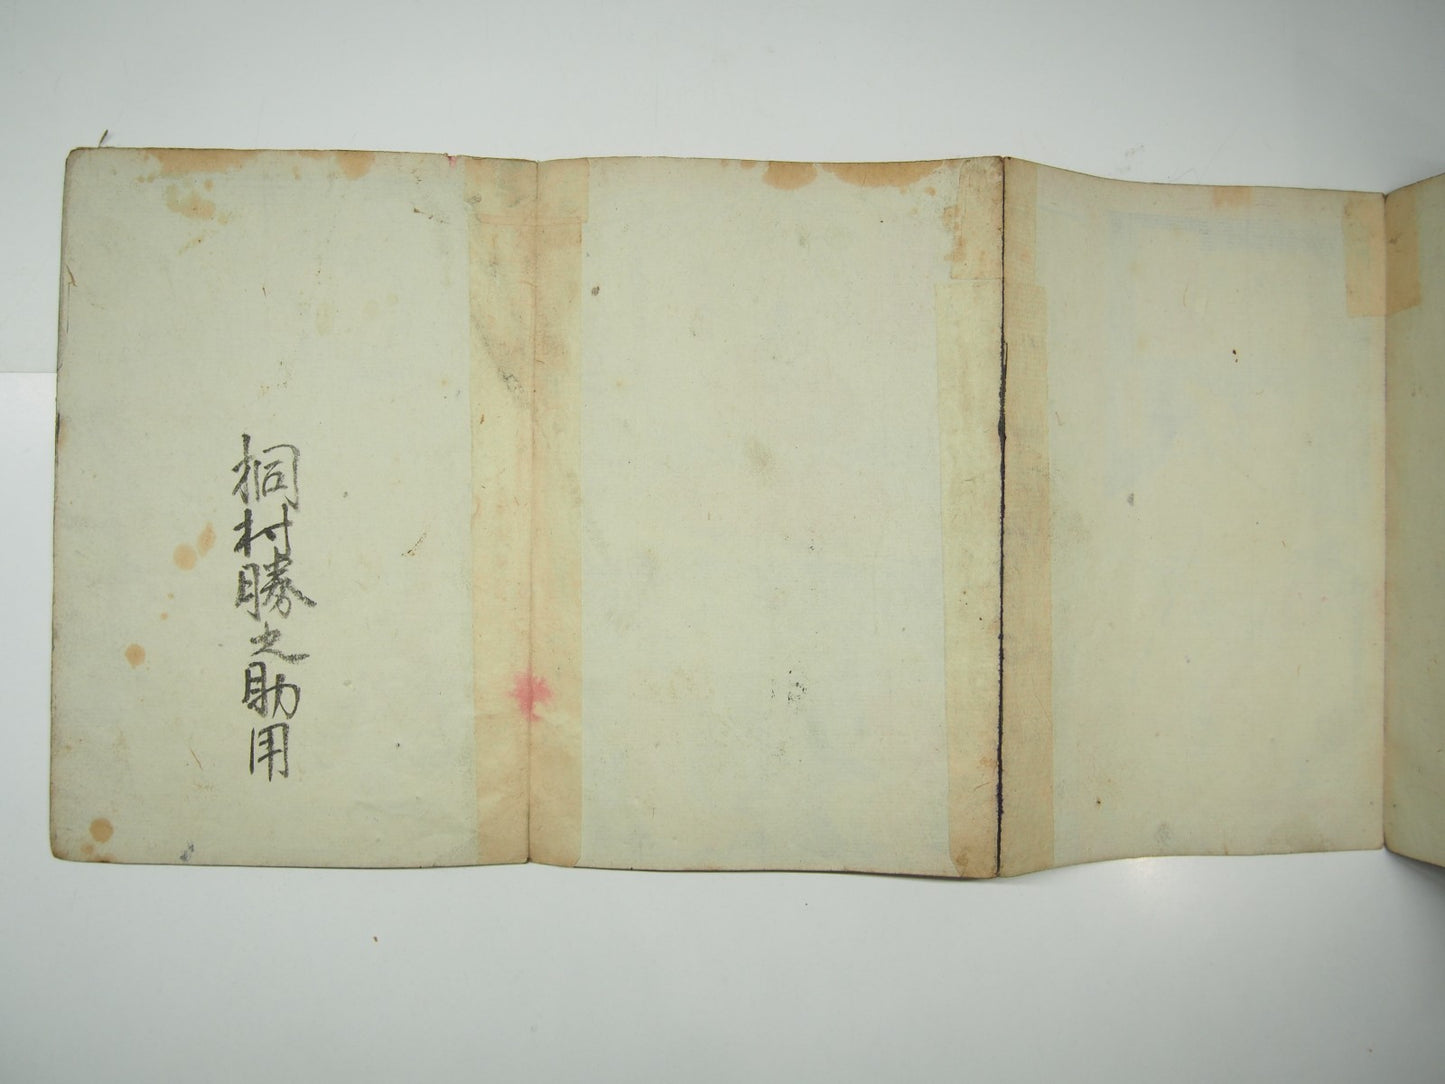 桐村勝之助用